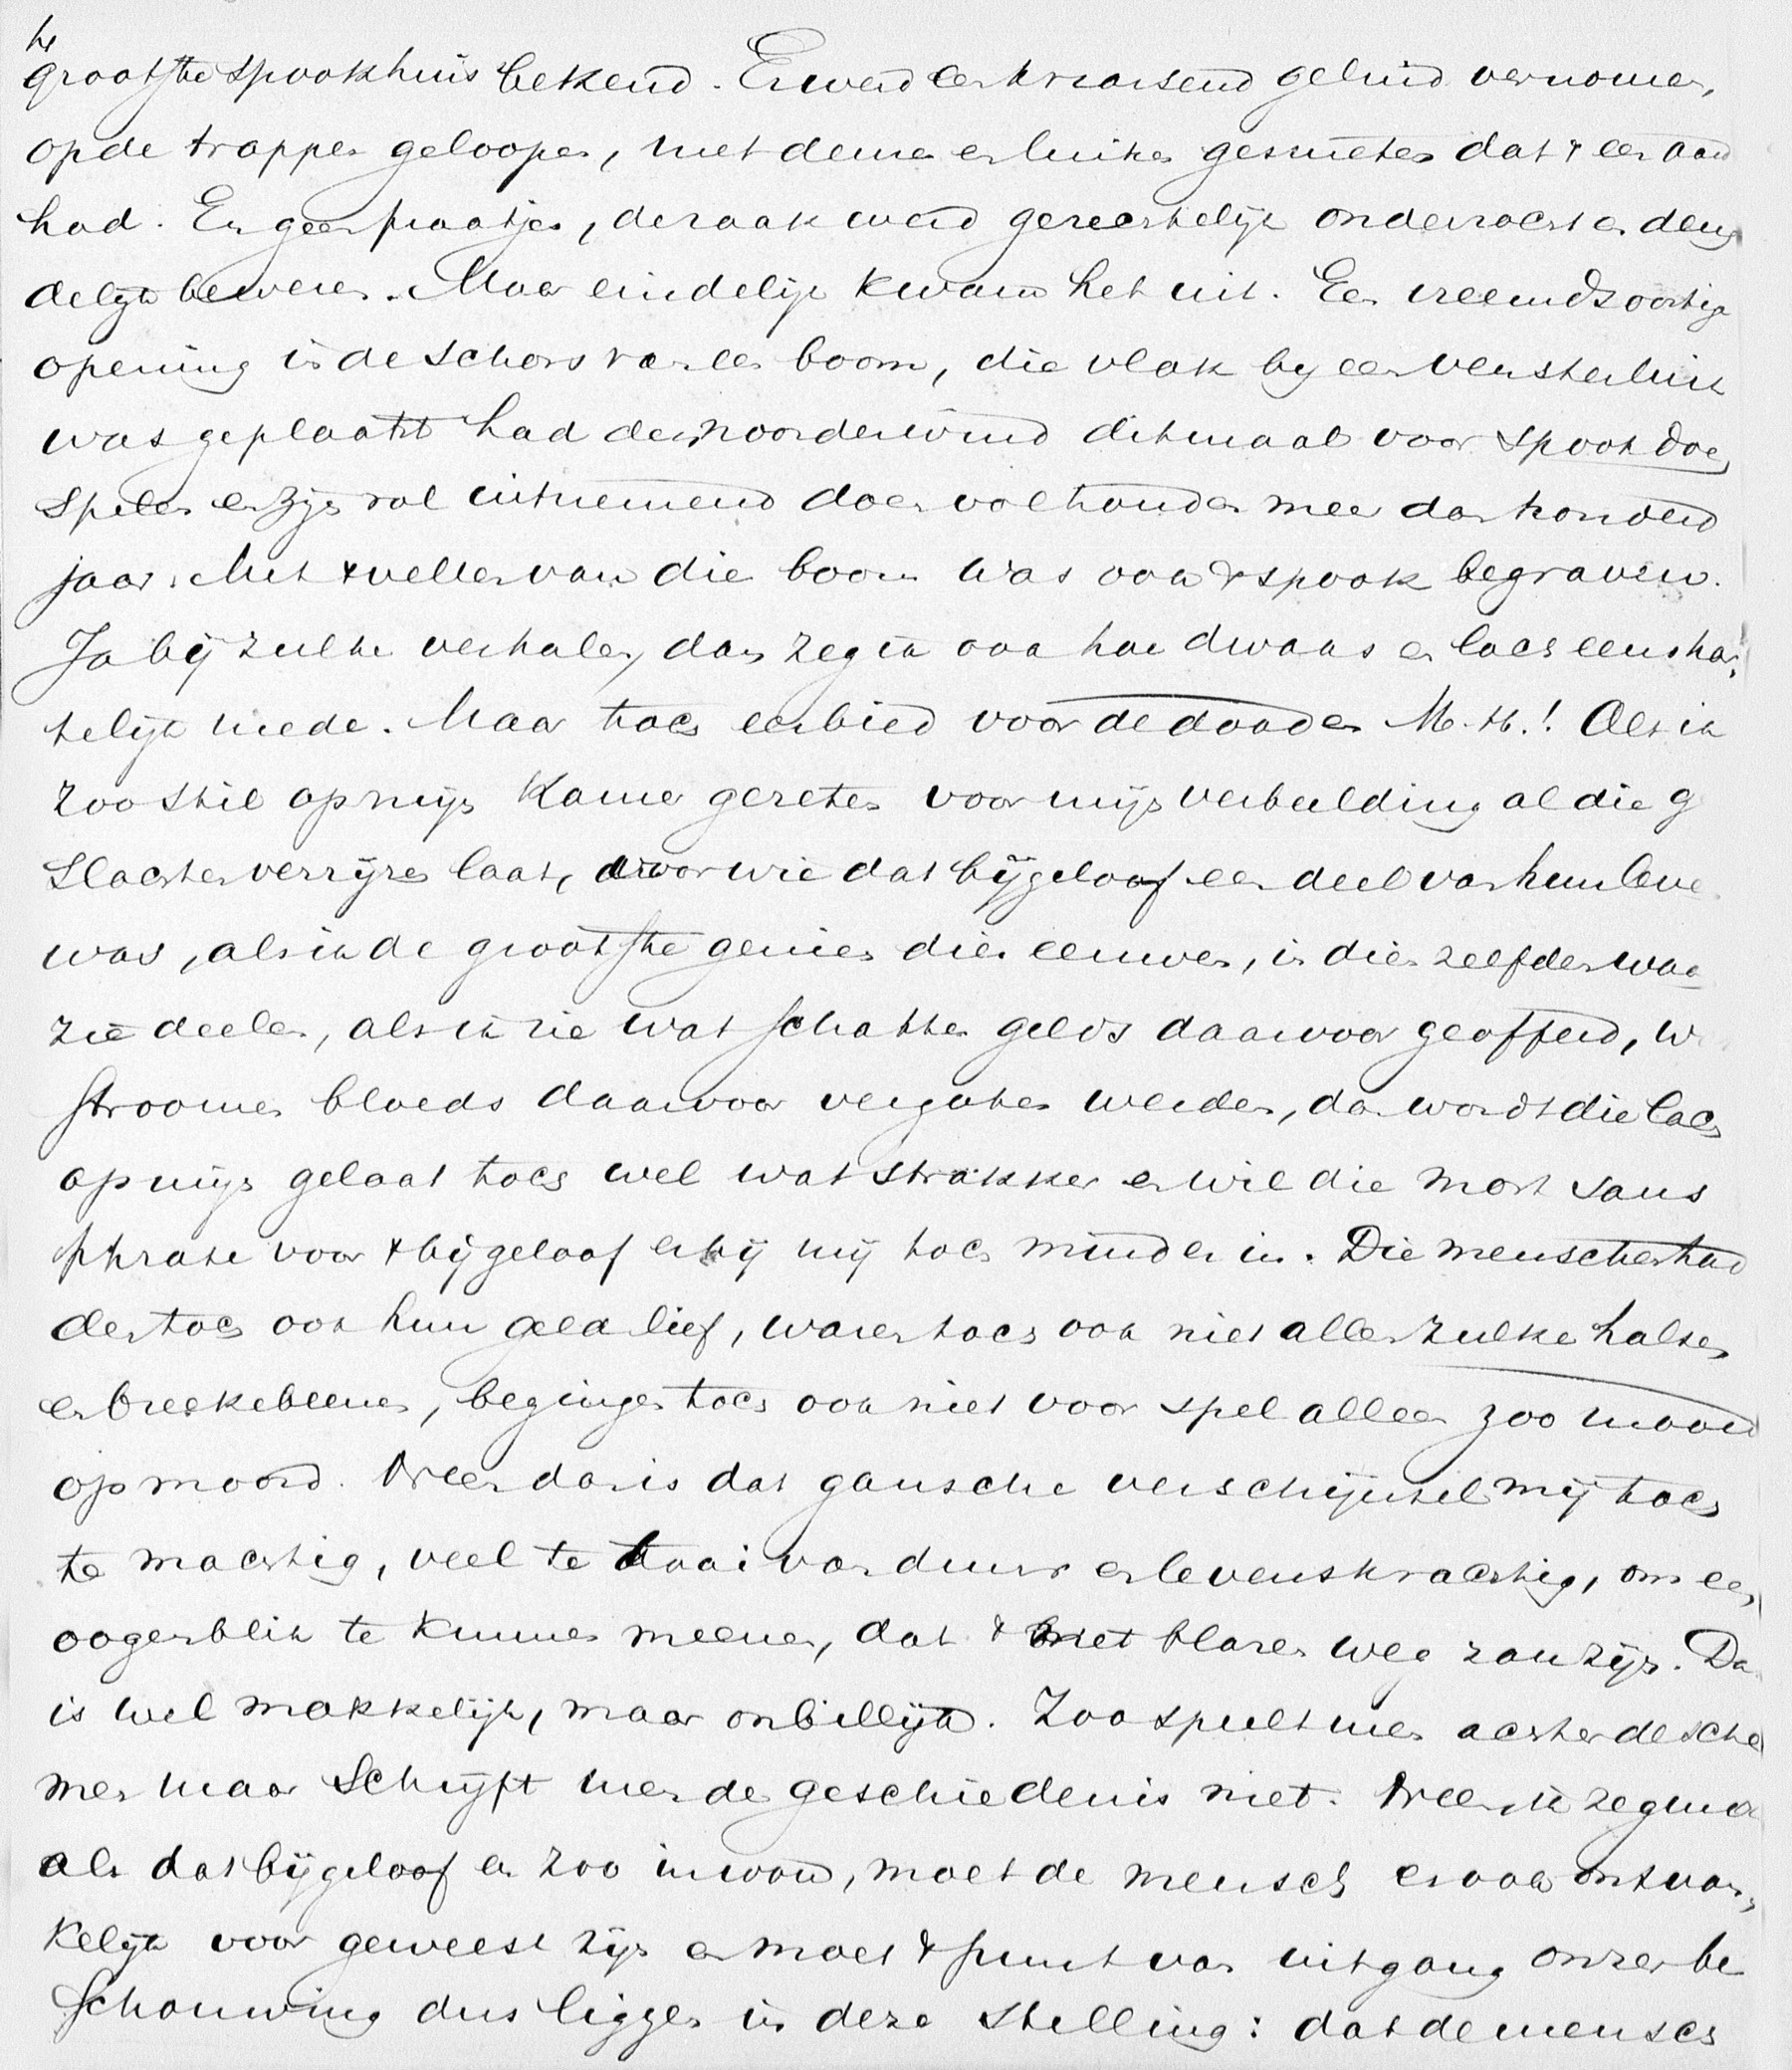 't
grootste spookhuis bekend. Er werd een krassend geluid vernomen,
op de trappen geloopen, met deuren en luiken gesmeten dat 't een aard
had. En geen praatjes, de zaak werd gerechtelijk onderzocht en dui
delijk bewezen. Maar eindelijk kwam het uit. Een vreemdsoortige
opening in de schors van een boom, die vlak by een vensterluik
was geplaatst had den noordenwind ditmaal voor spook doen
spelen en zijn rol uitnemend doen volhouden meer dan honderd
jaar. Met 't vellen van die boom was ook 't spook begraven.
Ja bij zulke verhalen, dan zeg ik ook hoe dwaas en lach eens har
telijk mede. Maar toch eerbied voor de dooden M. H.! Als ik
zoo stil op mijn kamer gezeten voor mijn verbeelding al die g
slachten verrijzen laat, voor wie dat bijgeloof een deel van hun leve
was, als ik de grootste genien dier eeuwen, in dien zelfden waa
zie deelen, als ik zie wat schatten gelds daarvoor geofferd, w
stroomen bloeds daarvoor vergoten werden, dan wordt die lach
op mijn gelaat toch wel wat strakker en wil die mort sans
phrase voor 't bijgeloof er bij mij toch minder in. Die menschen had
den toch ook hun geld lief, waren toch ook niet allen zulke halzen
en breekebeenen, begingen toch ook niet voor spel alleen zoo moord
op moord. Neen dan is dat gansche verschijnsel mij toch
te machtig, veel te taai van duur en levenskrachtig, om een
oogenblik te kunnen meenen, dat 't met blazen weg zou zijn. Da
is wel makkelijk, maar onbillijk. Zoo speelt men achter de sche
men maar schrijft men de geschiedenis niet. Neen, ik zeg me
als dat bijgeloof er zoo inwon, moet de mensch er ook ontvan
kelijk voor geweest zijn en moet 't punt van uitgang onzer be
schouwing dus liggen in deze stelling: dat de mensch